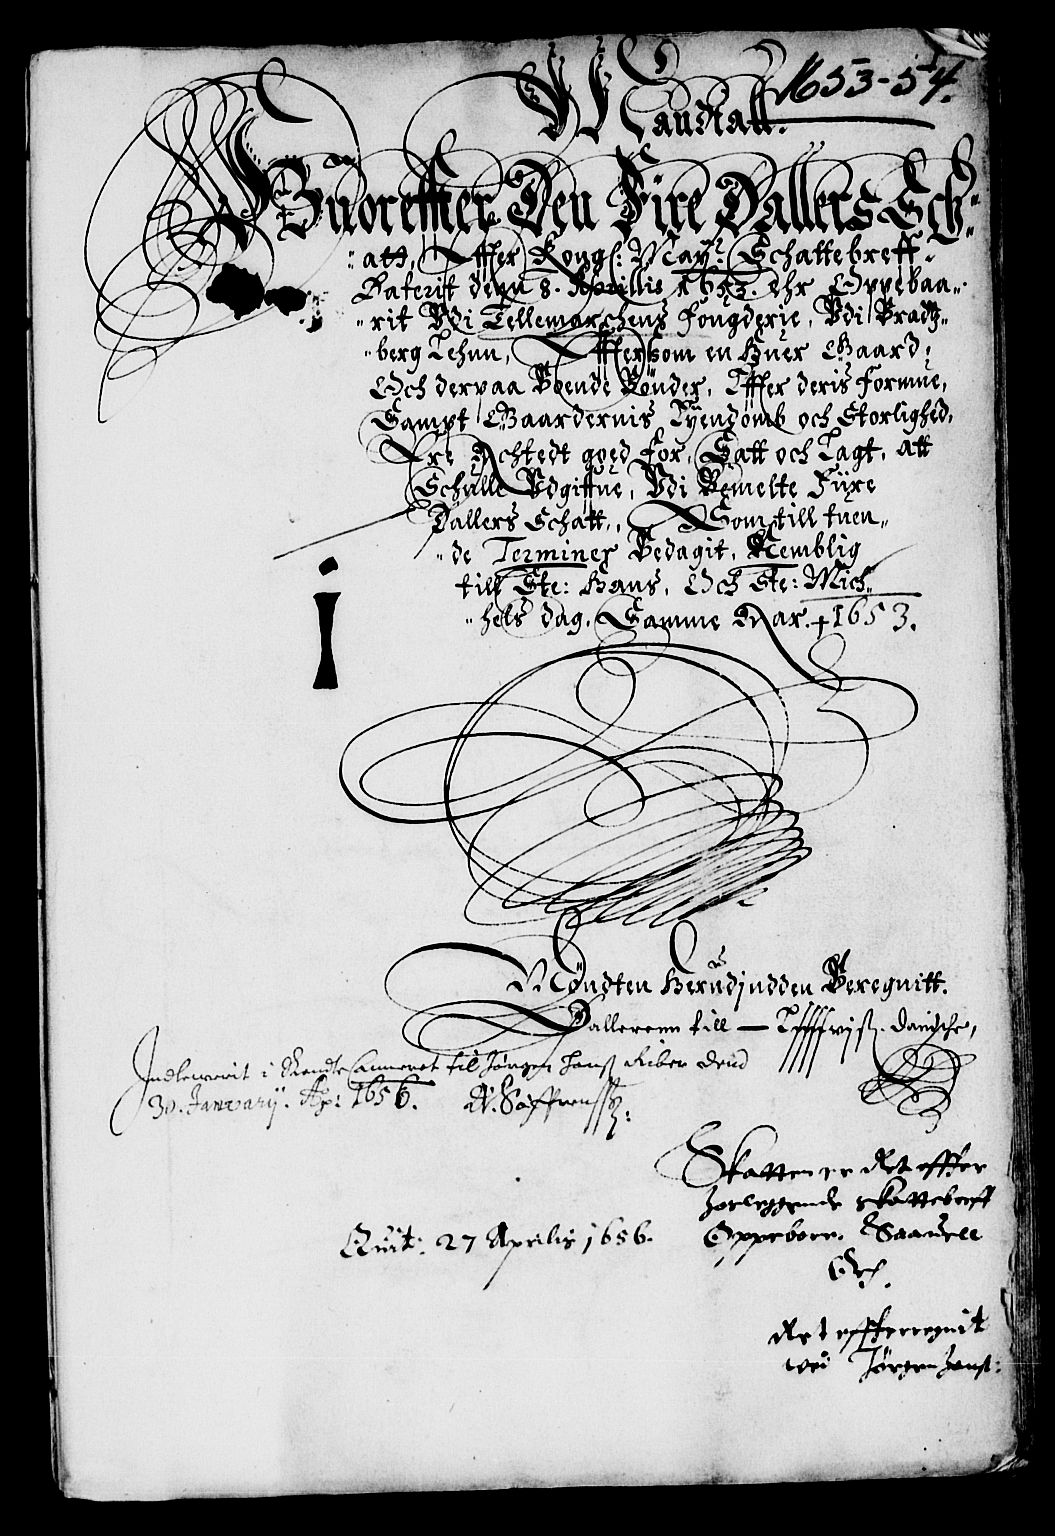 1653-54.
Mandtall.
Huoreffter Den Fire Dallers Sch-
"att, Effter Kongl: Mayts: Schattebreff
Daterit denn 8. Aprillis 1653. Ehr Oppebaa-
"rit Vdi Tellemarchens Fougderie, Vdi Bradtz-
"berg Lehnn, Effersom en Huer Gaard,
Och derpaa Boende Bønder, Effter deris Formue,
Sampt Gaardernis Eyendomb och Storlighed,
Ere Achtedt goed For, Satt och Lagt, att
Schulle Vdgiffue, Vdi Bemelte Fiire
Dallers Schatt, Som till tuen-
"de Terminer Bedagit, Nemblig
till Ste: Hans, Och Ste: Mich-
"hels dag, Samme Aar. 1653.
i
Møndten Herudjndden Beregnitt.
Dallerenn till — Lffffvjß. danische,
Indleuerit i Rendte Cammeret til Jørgen Hanß Riber Dend
30. Januarij. Ao: 1656. N. Søffrenß:
Skatten er Ret effter
horleggende skattebreff
Quit: 27 Aprilis 1656. Oppeboer. Saauell
Ret effterregnit
ved Jørgen Hanß: